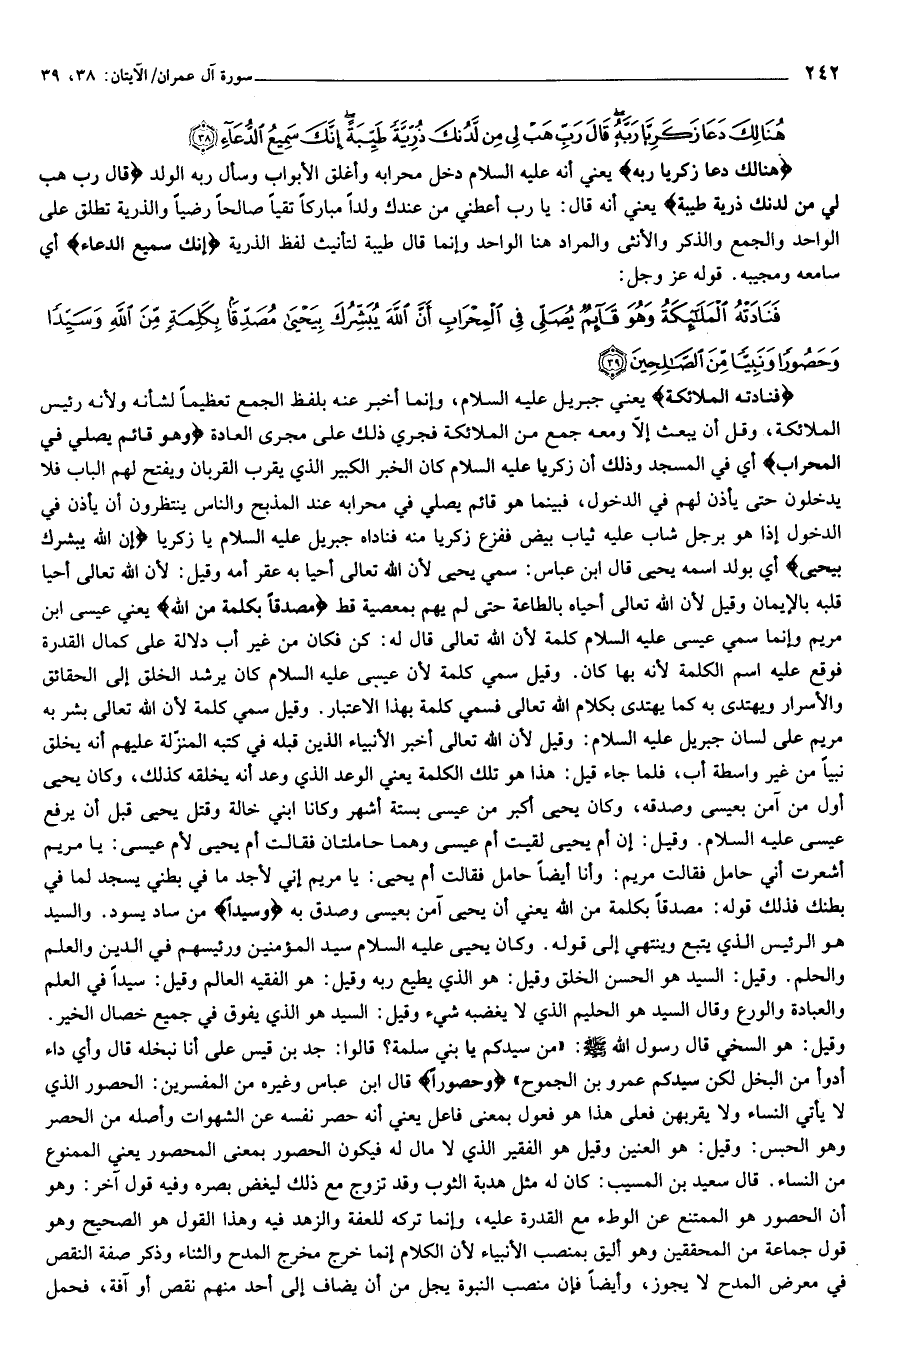 ٢٤٢ سورة آل عمران/ الآيتان: ٣٨، ٣٩
هُنَالِكَ دَعَا زَكَرِيَّا رَبَّهُۥ قَالَ رَبِّ هَبْ لِى مِن لَّدُنكَ ذُرِّيَّةً طَيِّبَةً إِنَّكَ سَمِيعُ ٱلدُّعَآءِ ﴿٣٨﴾
﴿هنالك دعا زكريا ربه﴾ يعني أنه عليه السلام دخل محرابه وأغلق الأبواب وسأل ربه الولد ﴿قال رب هب
لي من لدنك ذرية طيبة﴾ يعني أنه قال: يا رب أعطني من عندك ولداً مباركاً تقياً صالحاً رضياً والذرية تطلق على
الواحد والجمع والذكر والأنثى والمراد هنا الواحد وإنما قال طيبة لتأنيث لفظ الذرية ﴿إنك سميع الدعاء﴾ أي
سامعه ومجيبه. قوله عز وجل:
فَنَادَتْهُ ٱلْمَلَٰٓئِكَةُ وَهُوَ قَآئِمٌ يُصَلِّى فِى ٱلْمِحْرَابِ أَنَّ ٱللَّهَ يُبَشِّرُكَ بِيَحْيَىٰ مُصَدِّقًا بِكَلِمَةٍ مِّنَ ٱللَّهِ وَسَيِّدًا
وَحَصُورًا وَنَبِيًّا مِّنَ ٱلصَّٰلِحِينَ ﴿٣٩﴾
﴿فنادته الملائكة﴾ يعني جبريل عليه السلام، وإنما أخبر عنه بلفظ الجمع تعظيماً لشأنه ولأنه رئيس
الملائكة، وقل أن يبعث إلاّ ومعه جمع من الملائكة فجري ذلك على مجرى العادة ﴿وهو قائم يصلي في
المحراب﴾ أي في المسجد وذلك أن زكريا عليه السلام كان الخبر الكبير الذي يقرب القربان ويفتح لهم الباب فلا
يدخلون حتى يأذن لهم في الدخول، فبينما هو قائم يصلي في محرابه عند المذبح والناس ينتظرون أن يأذن في
الدخول إذا هو برجل شاب عليه ثياب بيض ففزع زكريا منه فناداه جبريل عليه السلام يا زكريا ﴿إن الله يبشرك
بيحيى﴾ أي بولد اسمه يحيى قال ابن عباس: سمي يحيى لأن الله تعالى أحيا به عقر أمه وقيل: لأن الله تعالى أحيا
قلبه بالإيمان وقيل لأن الله تعالى أحياه بالطاعة حتى لم يهم بمعصية قط ﴿مصدقاً بكلمة من الله﴾ يعني عيسى ابن
مريم وإنما سمي عيسى عليه السلام كلمة لأن الله تعالى قال له: كن فكان من غير أب دلالة على كمال القدرة
فوقع عليه اسم الكلمة لأنه بها كان. وقيل سمي كلمة لأن عيسى عليه السلام كان يرشد الخلق إلى الحقائق
والأسرار ويهتدى به كما يهتدى بكلام الله تعالى فسمي كلمة بهذا الاعتبار. وقيل سمي كلمة لأن الله تعالى بشر به
مريم على لسان جبريل عليه السلام: وقيل لأن الله تعالى أخبر الأنبياء الذين قبله في كتبه المنزّلة عليهم أنه يخلق
نبياً من غير واسطة أب، فلما جاء قيل: هذا هو تلك الكلمة يعني الوعد الذي وعد أنه يخلقه كذلك، وكان يحيى
أول من آمن بعيسى وصدقه، وكان يحيى أكبر من عيسى بستة أشهر وكانا ابني خالة وقتل يحيى قبل أن يرفع
عيسى عليه السلام. وقيل: إن أم يحيى لقيت أم عيسى وهما حاملتان فقالت أم يحيى لأم عيسى: يا مريم
أشعرت أني حامل فقالت مريم: وأنا أيضاً حامل فقالت أم يحيى: يا مريم إني لأجد ما في بطني يسجد لما في
بطنك فذلك قوله: مصدقاً بكلمة من الله يعني أن يحيى آمن بعيسى وصدق به ﴿وسيداً﴾ من ساد يسود. والسيد
هو الرئيس الذي يتبع وينتهي إلى قوله. وكان يحيى عليه السلام سيد المؤمنين ورئيسهم في الدين والعلم
والحلم. وقيل: السيد هو الحسن الخلق وقيل: هو الذي يطيع ربه وقيل: هو الفقيه العالم وقيل: سيداً في العلم
والعبادة والورع وقال السيد هو الحليم الذي لا يغضبه شيء وقيل: السيد هو الذي يفوق في جميع خصال الخير.
وقيل: هو السخي قال رسول الله ﷺ: «من سيدكم يا بني سلمة؟ قالوا: جد بن قيس على أنا نبخله قال وأي داء
أدوأ من البخل لكن سيدكم عمرو بن الجموح» ﴿وحصوراً﴾ قال ابن عباس وغيره من المفسرين: الحصور الذي
لا يأتي النساء ولا يقربهن فعلى هذا هو فعول بمعنى فاعل يعني أنه حصر نفسه عن الشهوات وأصله من الحصر
وهو الحبس: وقيل: هو العنين وقيل هو الفقير الذي لا مال له فيكون الحصور بمعنى المحصور يعني الممنوع
من النساء. قال سعيد بن المسيب: كان له مثل هدبة الثوب وقد تزوج مع ذلك ليغض بصره وفيه قول آخر: وهو
أن الحصور هو الممتنع عن الوطء مع القدرة عليه، وإنما تركه للعفة والزهد فيه وهذا القول هو الصحيح وهو
قول جماعة من المحققين وهو أليق بمنصب الأنبياء لأن الكلام إنما خرج مخرج المدح والثناء وذكر صفة النقص
في معرض المدح لا يجوز، وأيضاً فإن منصب النبوة يجل من أن يضاف إلى أحد منهم نقص أو آفة، فحمل